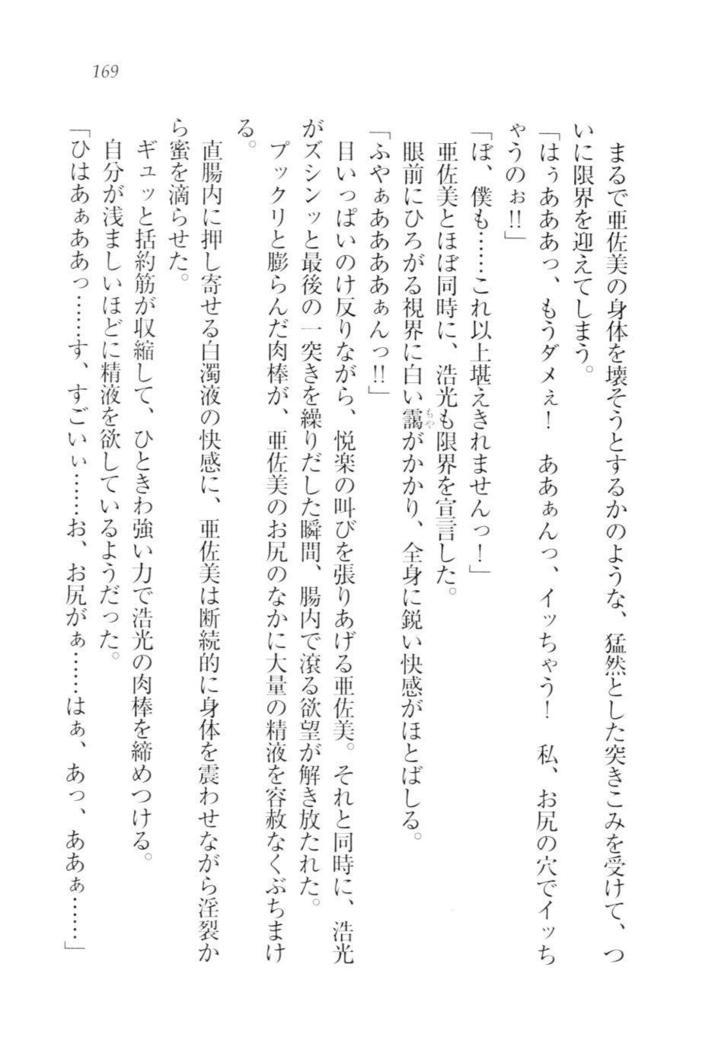 169
まるで亜佐美の身体を壊そうとするかのような、猛然とした突きこみを受けて、つ
いに限界を迎えてしまう。
「はぅあああっ、もうダメぇ！　ああぁんっ、イッちゃう！　私、お尻の穴でイッち
ゃうのぉ!!」
「ぼ、僕も……これ以上堪えきれませんっ！」
亜佐美とほぼ同時に、浩光も限界を宣言した。
眼前にひろがる視界に白い靄がかかり、全身に鋭い快感がほとばしる。
もや
「ふやぁああああぁんっ!!」
目いっぱいのけ反りながら、悦楽の叫びを張りあげる亜佐美。それと同時に、浩光
がズシンッと最後の一突きを繰りだした瞬間、腸内で滾る欲望が解き放たれた。
プックリと膨らんだ肉棒が、亜佐美のお尻のなかに大量の精液を容赦なくぶちまけ
る。
直腸内に押し寄せる白濁液の快感に、亜佐美は断続的に身体を震わせながら淫裂か
ら蜜を滴らせた。
ギュッと括約筋が収縮して、ひときわ強い力で浩光の肉棒を締めつける。
自分が浅ましいほどに精液を欲しているようだった。
「ひはあぁああっ……す、すごいぃ……お、お尻がぁ……はぁ、あっ、ああぁ……」